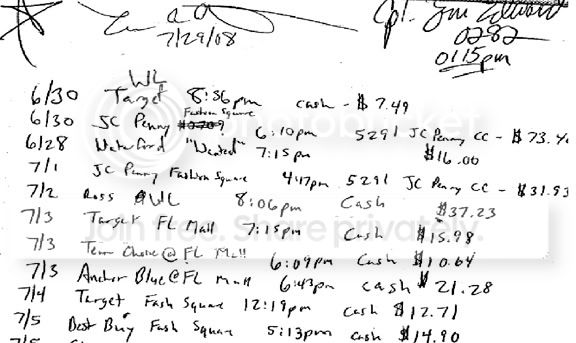 7/29/08
Cpl.
0282
0115pm
WL
6/30 Target 8:36pm cash - $7.49
Fashion Square
6/30 JC Penny 6:10pm 5291 JC Penny CC - $73.4
6/28 Waterford "Wanted" 7:15pm $16.00
7/1 JC Penny Fashion Square 4:47pm 5291 JC Penny CC - $31.93
7/2 Ross WL 8:06pm Cash $37.23
7/3 Target FL Mall 7:15pm Cash $15.98
7/3 @ FL Mall 6:09pm Cash $10.64
7/3 Anchor Blue @ FL Mall 6:43pm cash $21.28
7/4 Target Fash Square 12:19pm cash $12.71
7/5 Best Buy Fash Square 5:13pm cash $14.90
photobucket
Join free. Share privately.